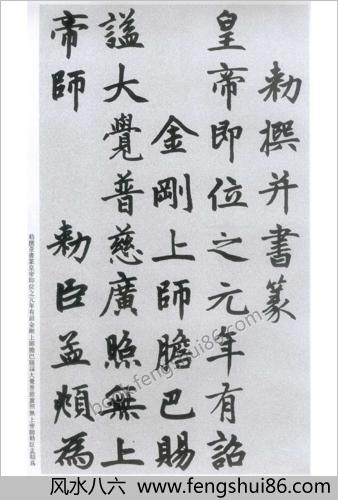 勑撰并書篆
皇帝即位之元年有詔
金剛上師膽巴賜
謚大覺普慈廣照無上
帝師 勑臣孟頫為
勅撰並書篆皇帝即位之元年有詔金剛上師膽巴賜謚大覺普慈廣照無上帝師勅臣孟頫爲
风水八六 www.fengshui86.com